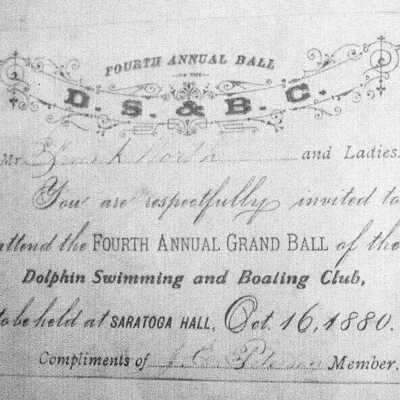 FOURTH ANNUAL BALL
OF THE
D. S. & B. C.
Mr Frank North and Ladies.
You are respectfully invited to
attend the FOURTH ANNUAL GRAND BALL of the
Dolphin Swimming and Boating Club,
to be held at SARATOGA HALL, Oct. 16, 1880.
Compliments of J. C. Member.